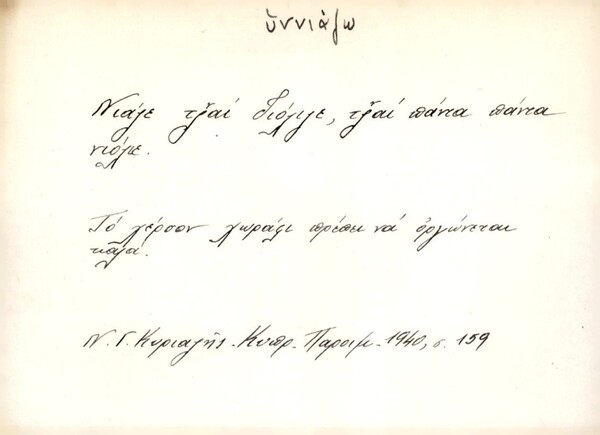 ὑννιάζω
Νιάζε τζ̆αί διόλιζε, τζ̆αί πάντα πάντα
νιάζε.
Τό χέρσον χωράφι πρέπει νά ὀργώνεται
καλά.
Ν. Γ. Κυριαζῆς - Κυπρ. Παροιμ. 1940, σ. 159